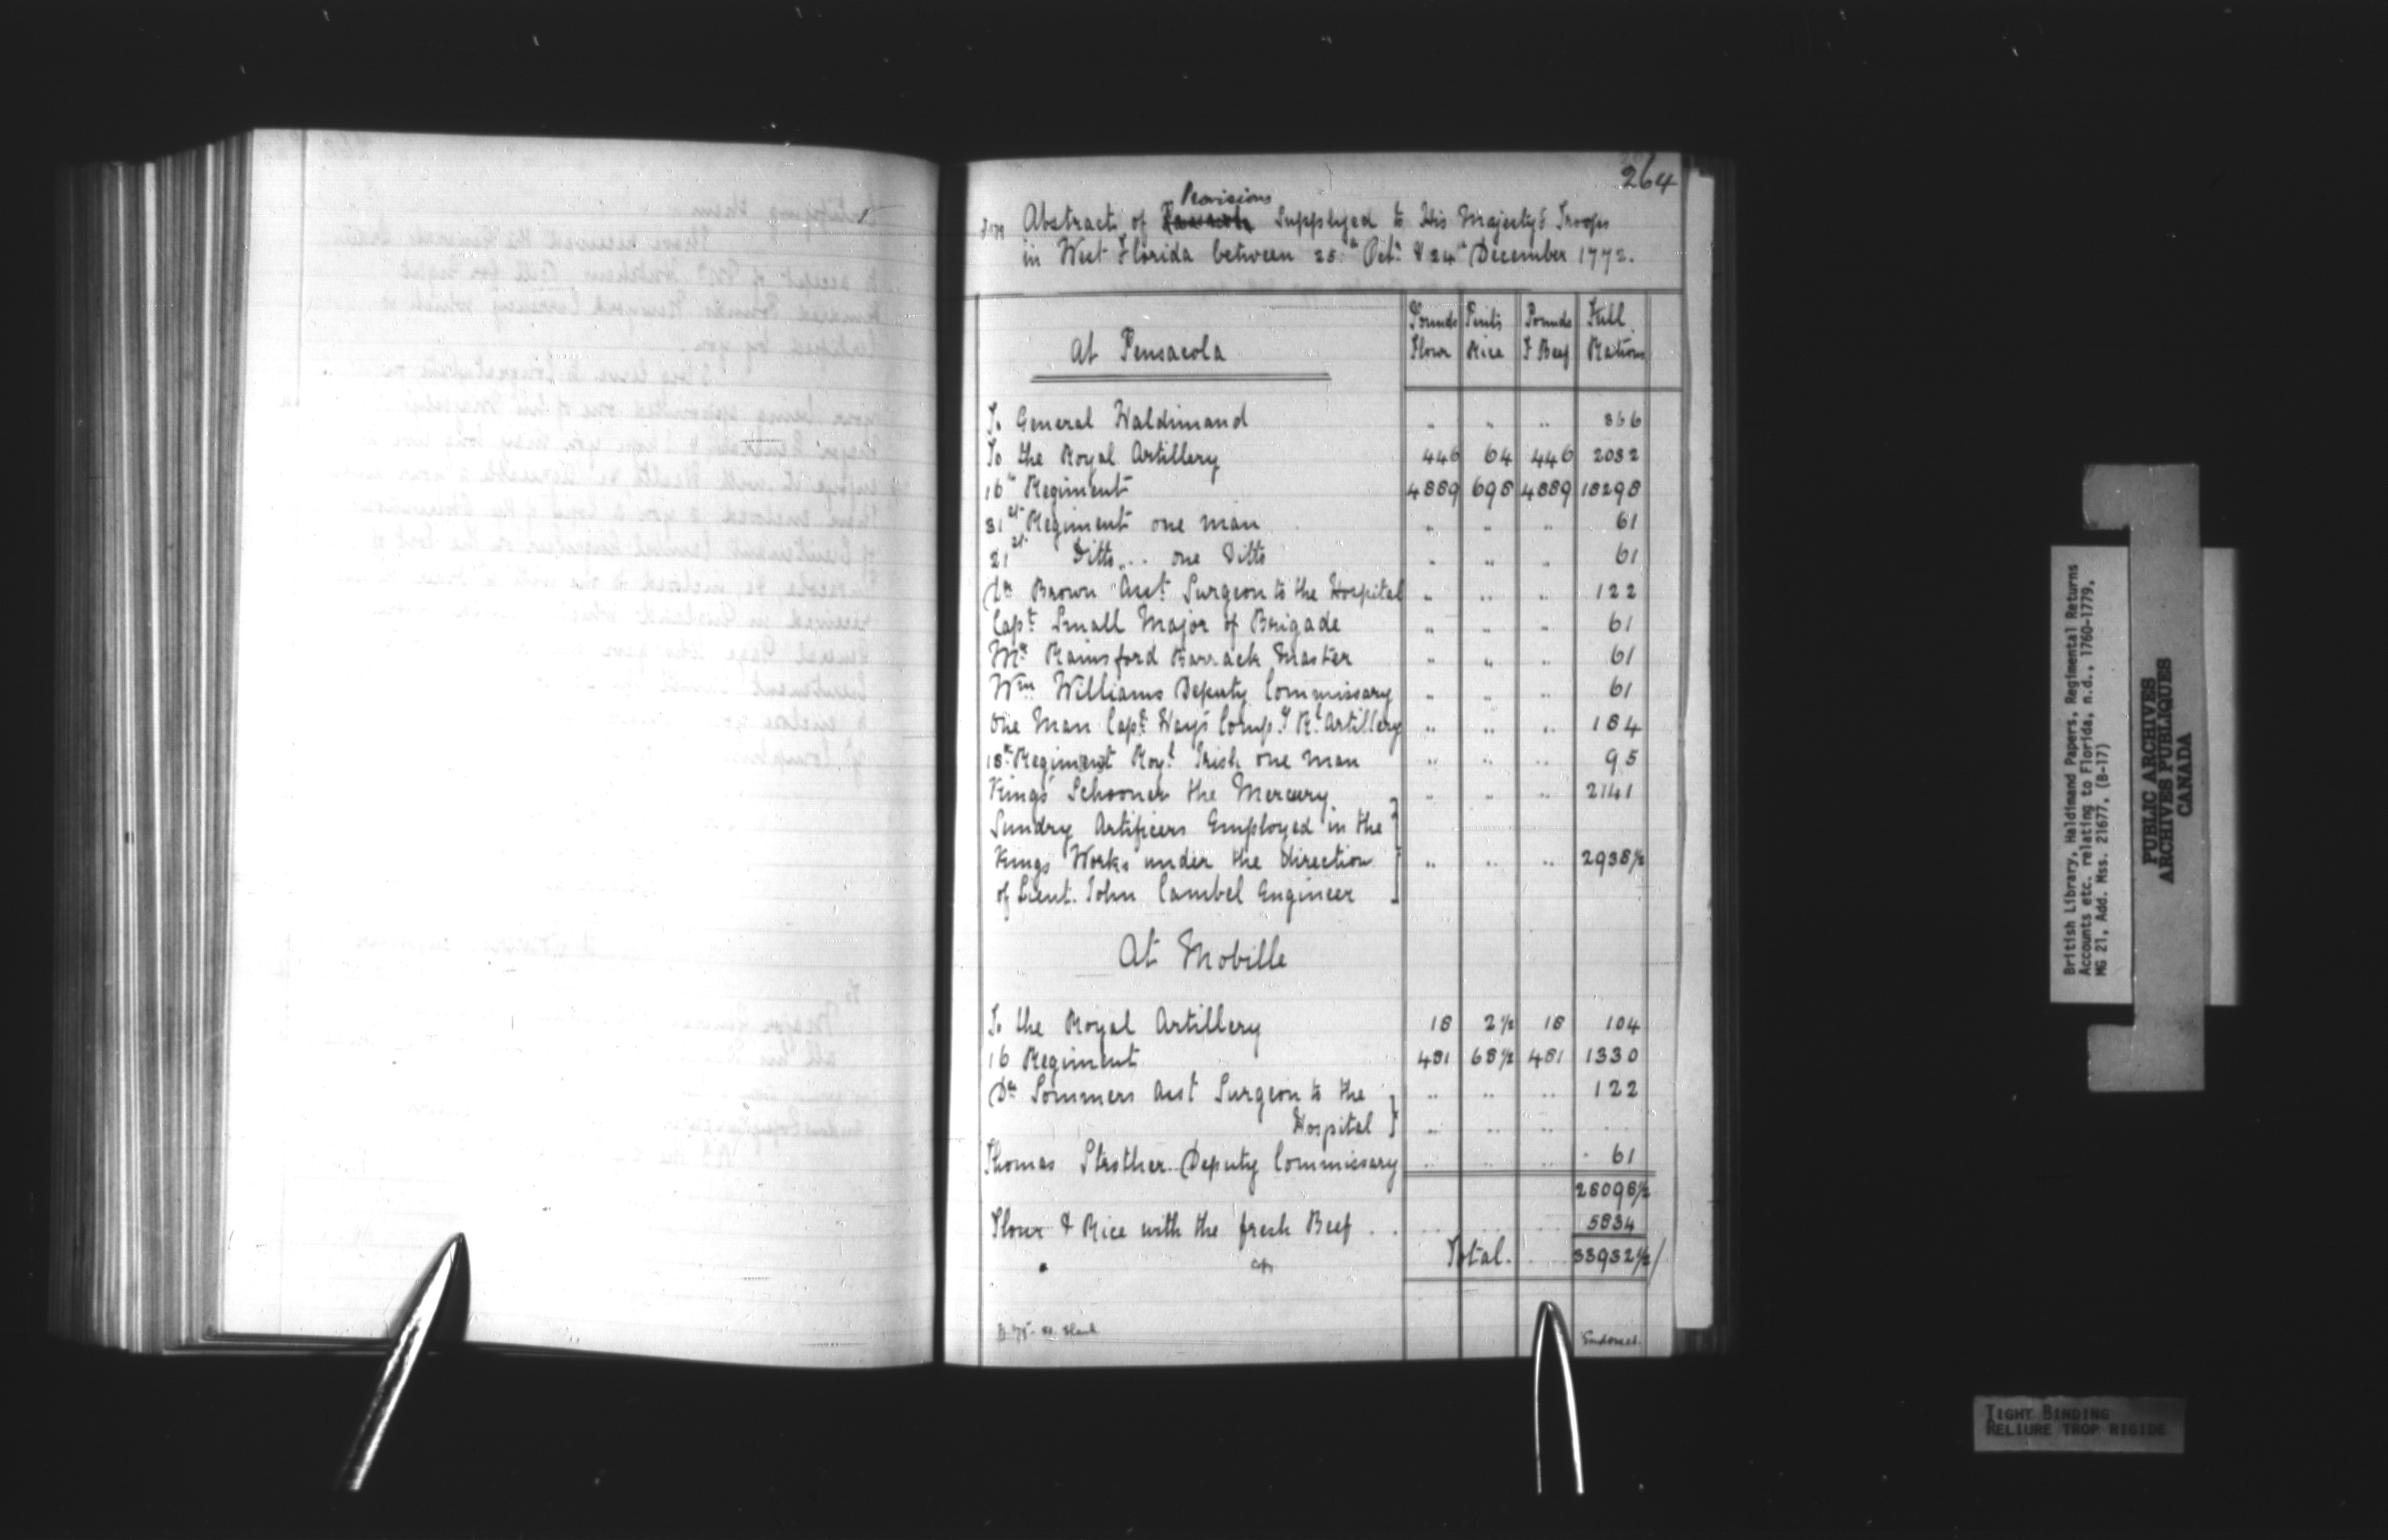 264
Provisions
Abstract of Supplyed to His Majesty's Troops
in West Florida between 25th Octr & 24th December 1772.
At Pensacola
Pounds Flour Pints Rice Pounds F Beef Full Rations
To General Haldimand " " " 366
To the Royal Artillery 446 64 446 2032
16th Regiment 4889 698 4889 18298
31st Regiment one man " " " 61
21st Ditto .. one Ditto " " " 61
Dr Brown Asst Surgeon to the Hospital " " " 122
Capt Small Major of Brigade " " " 61
Mr Rainsford Barrack Master " " " 61
Wm Williams Deputy Commissary " " " 61
One Man Capt Hay's Comp.y Rl Artillery " " " 184
18th Regiment Royl Irish one man " " " 95
Kings Schooner the Mercury " " " 2141
Sundry Artificers Employed in the
Kings Works under the direction " " " 2938½
of Lieut. John Cambel Engineer
At Mobille
To the Royal Artillery 18 2½ 18 104
16 Regiment 481 68½ 481 1330
Dr Sommers Asst Surgeon to the " " " 122
Hospital " " " "
Thomas Strother Deputy Commissary " " " 61
28098½
Flour & Rice with the fresh Beef . . 5834
Total. 33932½
Copy
B. 75
Endorsed.
British Library, Haldimand Papers, Regimental Returns
Accounts etc. relating to Florida, n.d., 1760-1779,
MG 21, Add. Mss. 21677, (B-17)
PUBLIC ARCHIVES
ARCHIVES PUBLIQUES
CANADA
TIGHT BINDING
RELIURE TROP RIGIDE